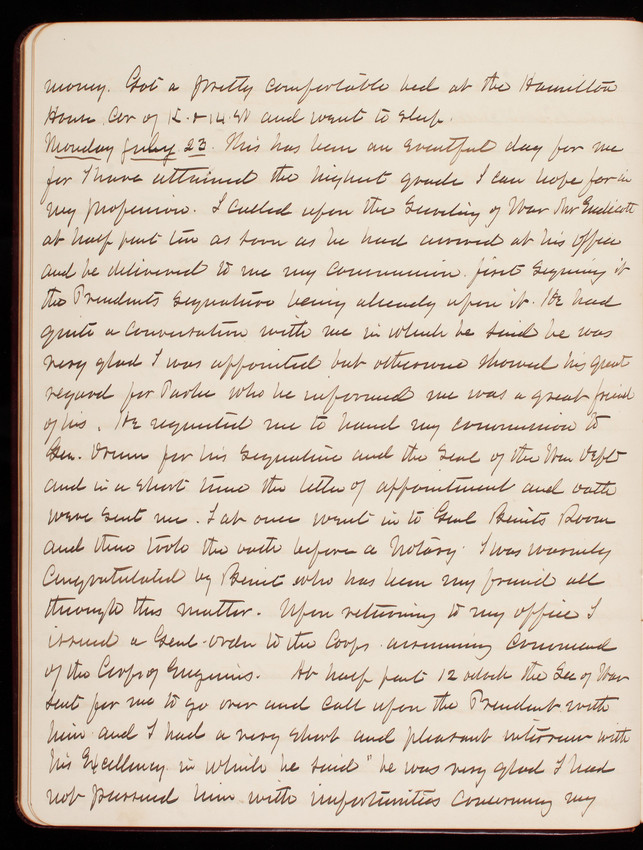 money. Got a pretty comfortable bed at the Hamilton
House Cor of K. & 14 St and went to sleep.
Monday July 23. This has been an eventful day for me
for I have attained the highest grade I can hope for in
my profession. I called upon the Secretary of War Mr Endicott
at half past ten as soon as he had arrived at his office
and he delivered to me my Commission first signing it
the Presidents signature being already upon it. He had
quite a conversation with me in which he said he was
very glad I was appointed but otherwise showed his great
regard for Parke who he informed me was a great friend
of his. He requested me to hand my commission to
Gen. Drum for his signature and the Seal of the War Dept
and in a short time the letter of appointment and oath
were sent me. I at once went in to Genl Benets Room
and then took the oath before a Notary. I was warmly
Congratulated by Benet who has been my friend all
through this matter. Upon returning to my office I
issued a Genl-order to the Corps assuming Command
of the Corps of Engineers. At half past 12 oclock the Sec of War
sent for me to go over and call upon the President with
him and I had a very short and pleasant interview with
his Excellency in which he said "he was very glad I had
not pursued him with importunities concerning my